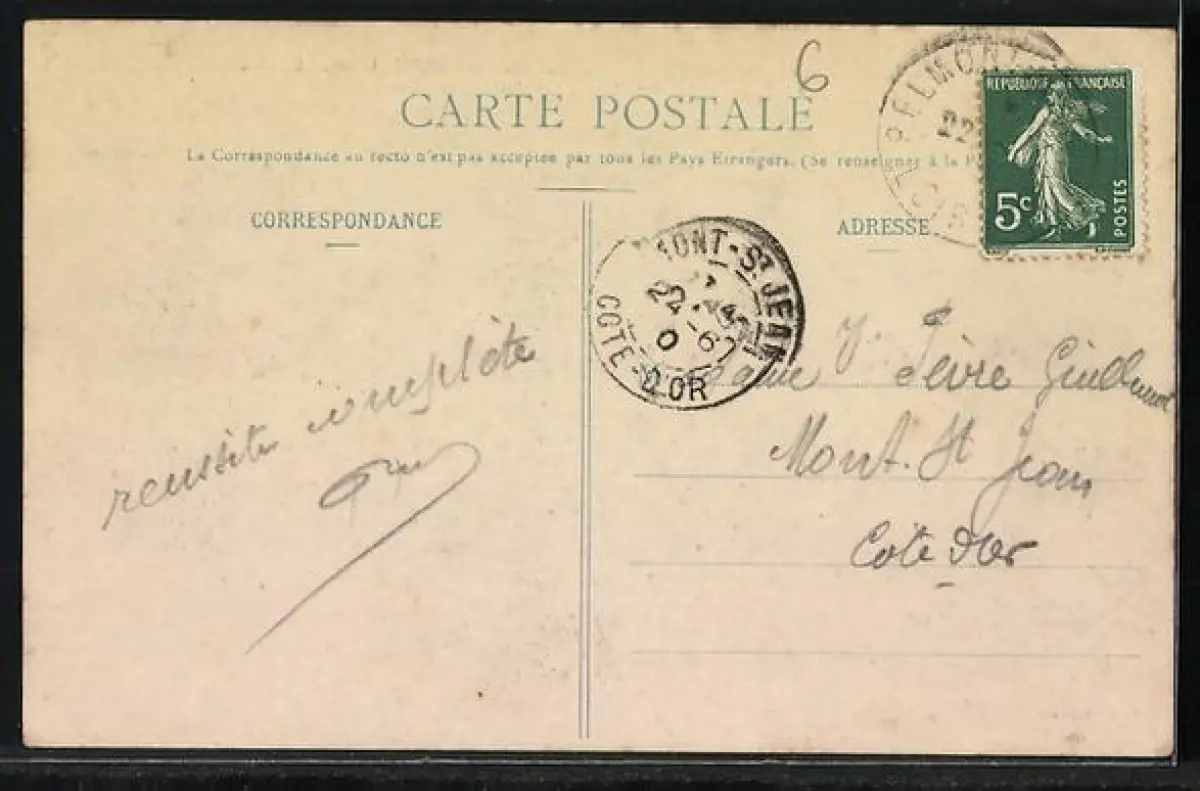 6
CARTE POSTALE
La Correspondance au recto n'est pas acceptée par tous les Pays Etrangers. (Se renseigner à la P
CORRESPONDANCE
ADRESSE
REPUBLIQUE FRANÇAISE
5c
POSTES
ELMONT
22
MONT-St JEAN
22-6
COTE-D'OR
reussite complète
V. Fèvre Guillemot
Mont. St Jean
Cote d'Or